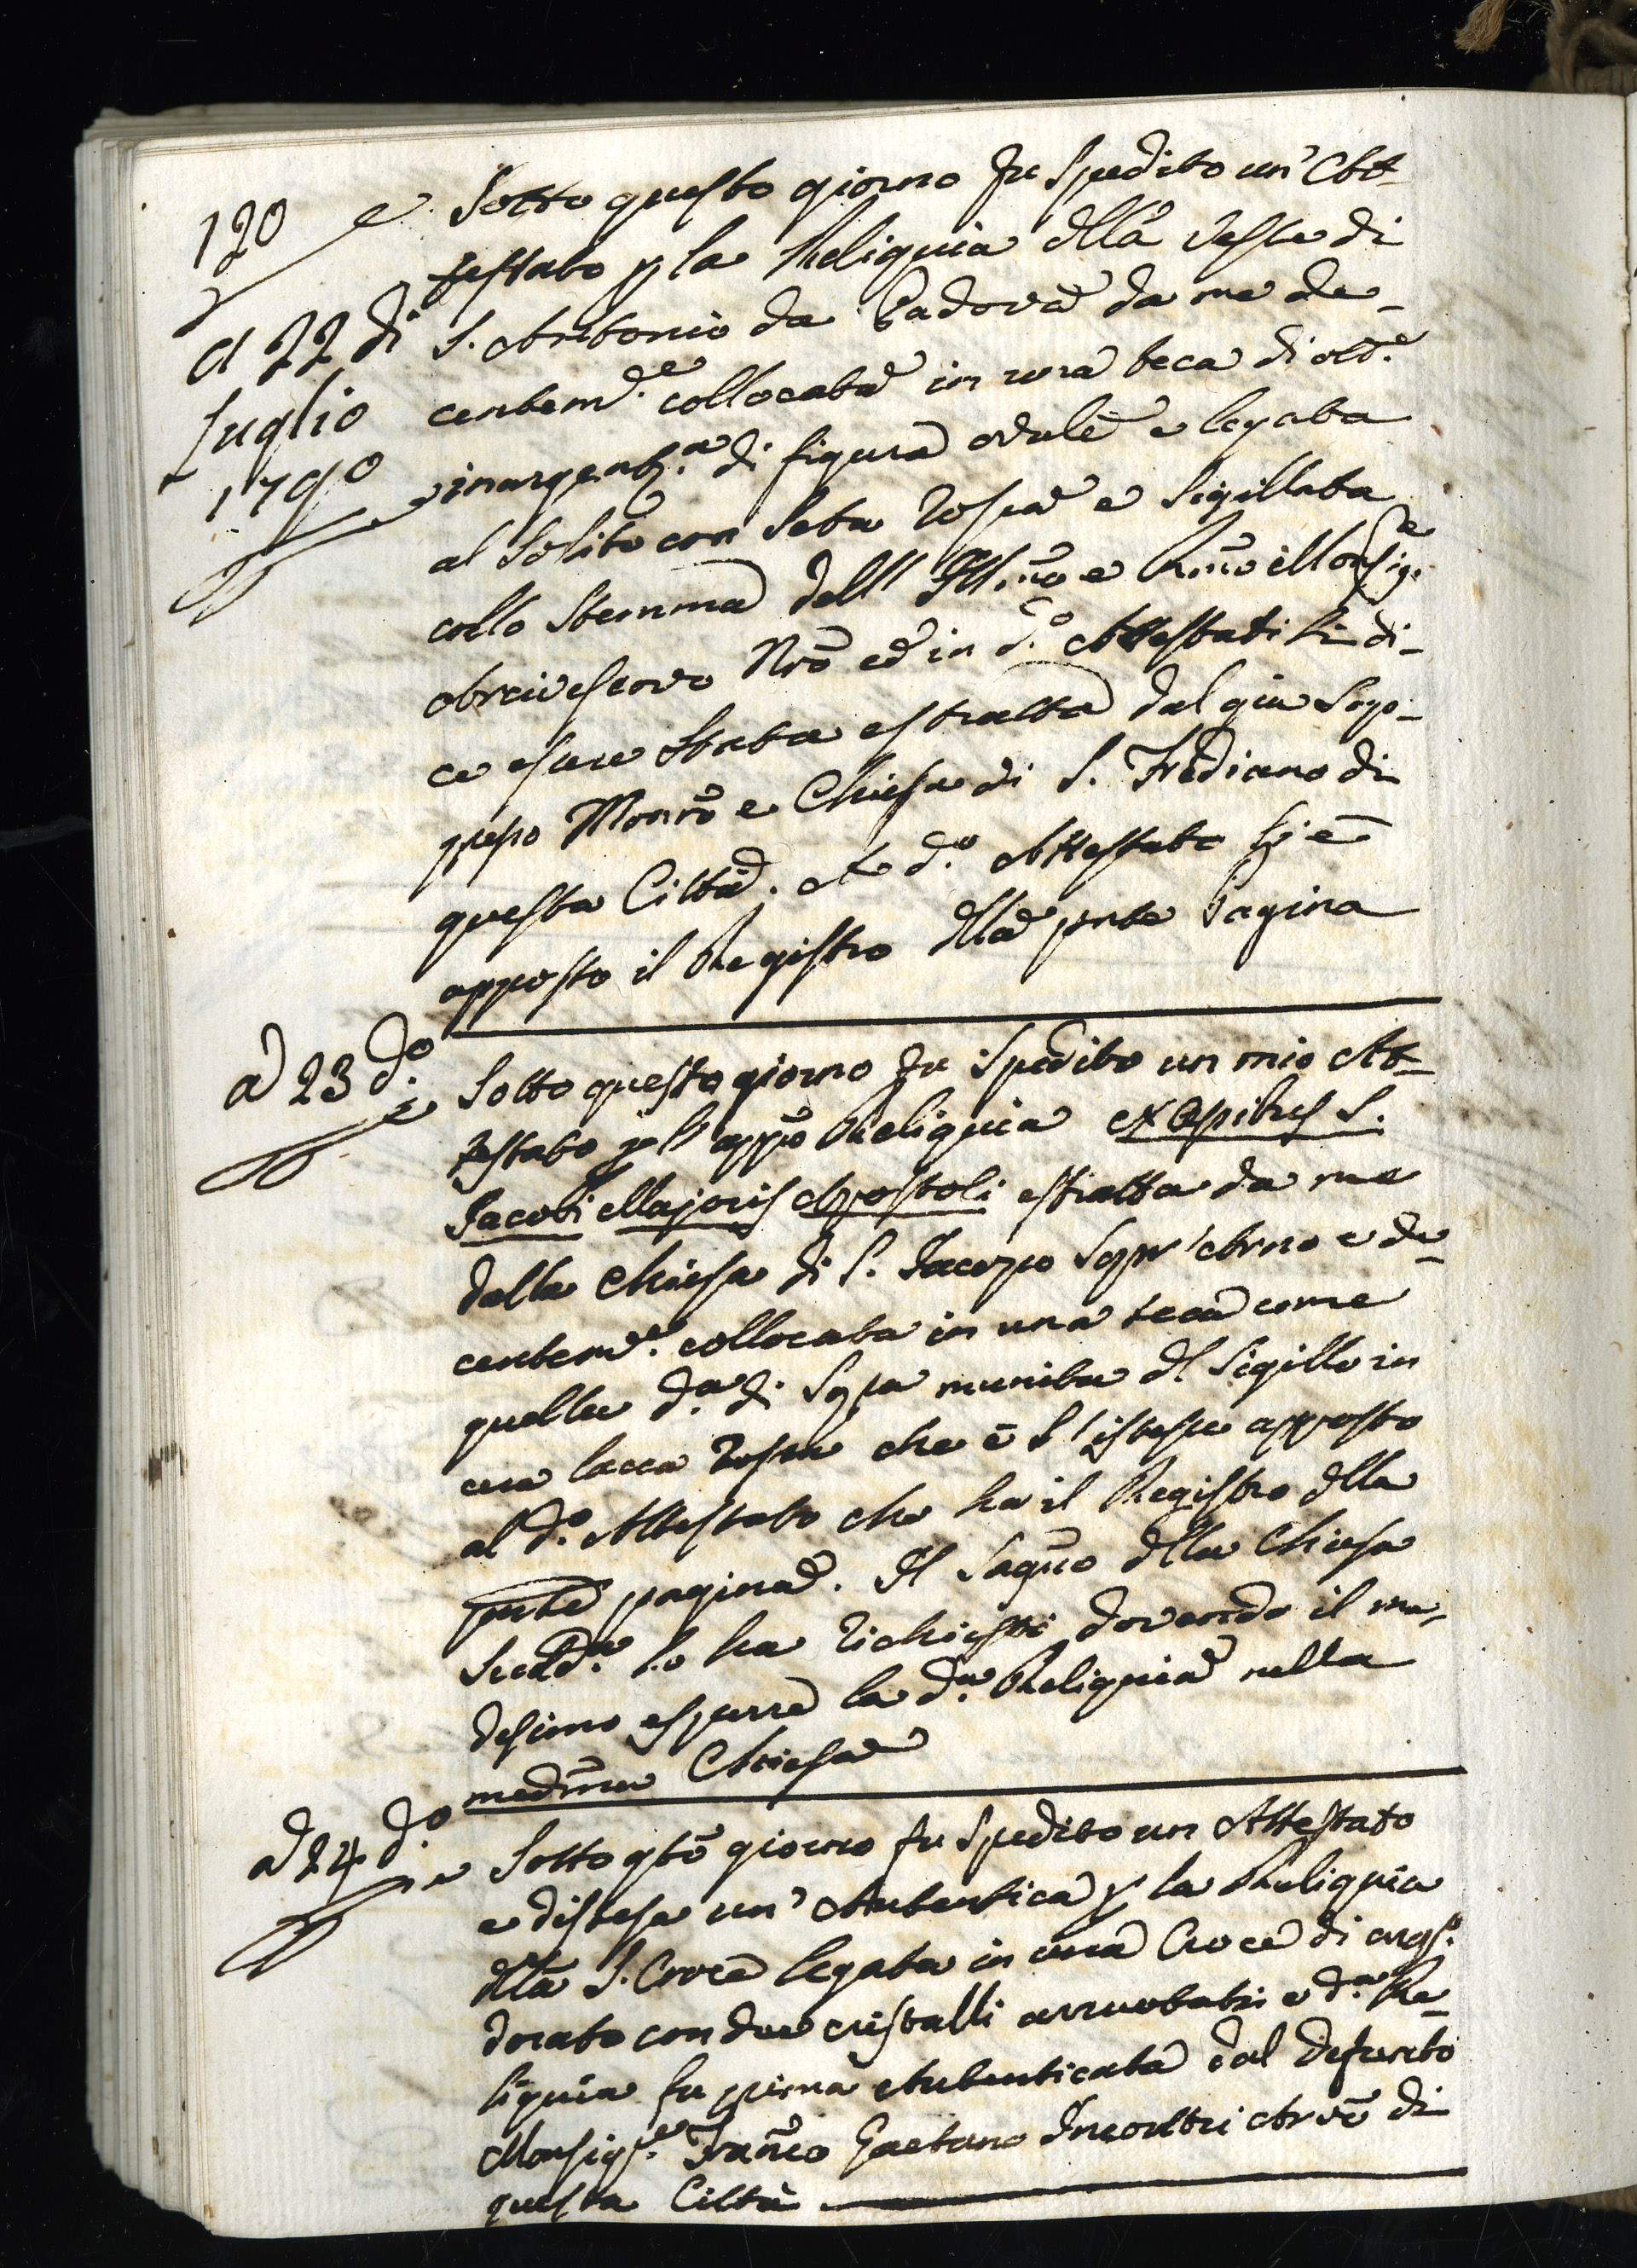 120
A 22 di
Luglio
1790
Sotto questo giorno fu spedito un' Att-
testato p la Reliquia dlla Veste di
S. Antonio da Padova da me de-
centem.e collocata in una teca di ott.e
inargent.a di figura ovale e legata
al solito con seta rossa e sigillata
collo stemma dell' Ill.mo e Rmo Monsig.e
Arcivescovo Nro ed in d.o Attestati si di-
ce essere stata estratta dal già Sop-
presso Monro e Chiesa di S. Frediano di
questa Città. Al d.o Attestato si è
apposto il Registro dlla pnte Pagina
a 23 d.o
Sotto questo giorno fu spedito un mio At-
testato p l' appo Reliquia ex Capitis S.
Jacobi Majoris Apostoli estratta da me
dalla Chiesa di S. Jacopo Sopr' Arno e de-
centem.e collocata in una teca come
quella d.a di sopra munita dl Sigillo in
cera lacca rossa che è l' istessa apposto
al d.o Attestato che ha il Registro dlla
pnte pagina. Il Sagno dlla Chiesa
Sudd.a lo ha richiesti dovendo il me-
desimo esporre la d.a Reliquia nella
medma Chiesa
a 24 d.o
Sotto qto giorno fu spedito un Attestato
e distesa un' Autentica p la Reliquia
dlla S. Croce legata in una Croce di arg.o
dorato con due cristalli arruotati e d.a Re-
liquia fu prima Autenticata dal defunto
Monsig.e Franco Gaetano Incontri Arvo di
questa Città